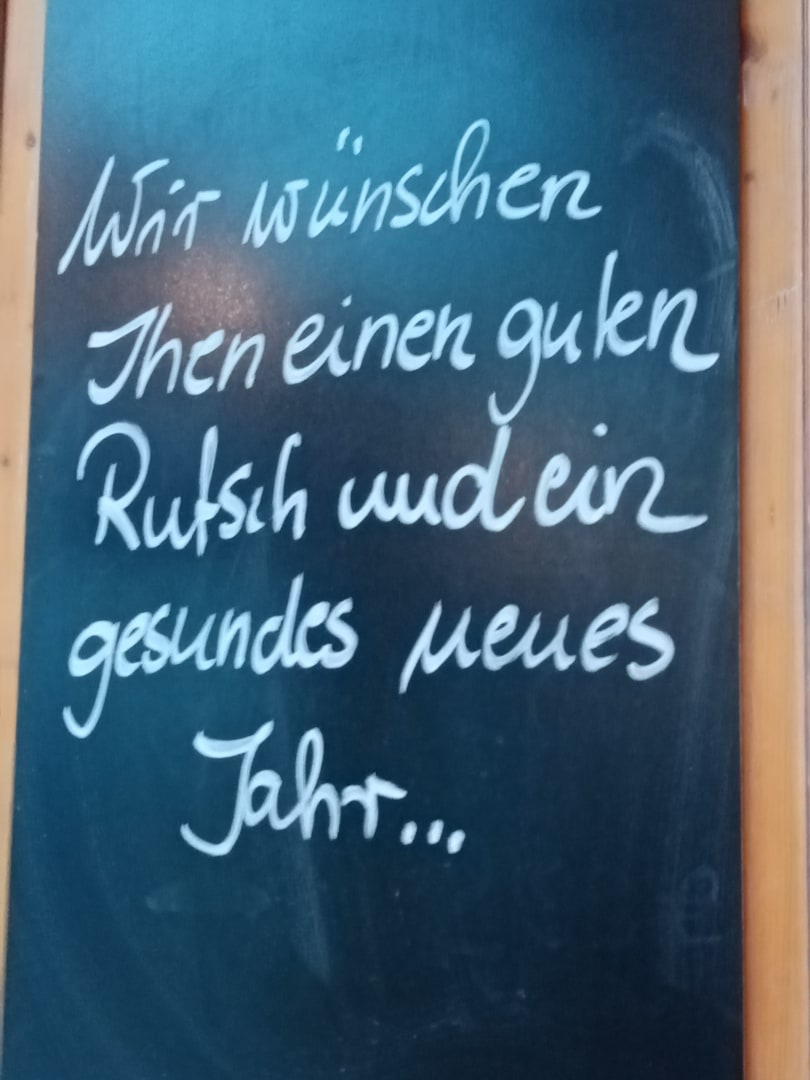 Wir wünschen
Ihen einen guten
Rutsch und ein
gesundes neues
Jahr...